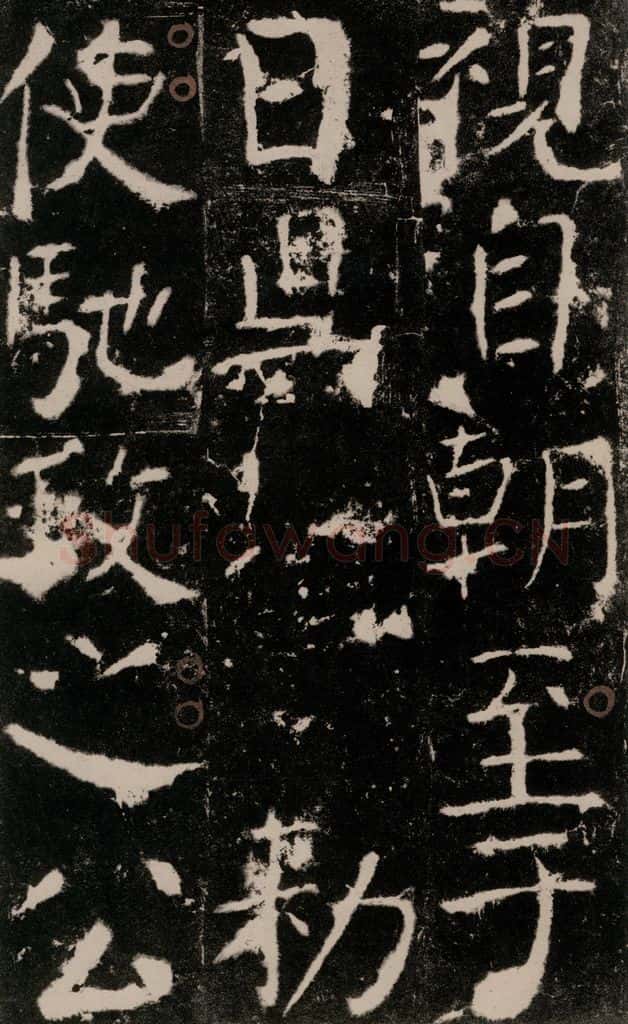 視自朝至于
日勅
使馳救之公
Shufawang.CN